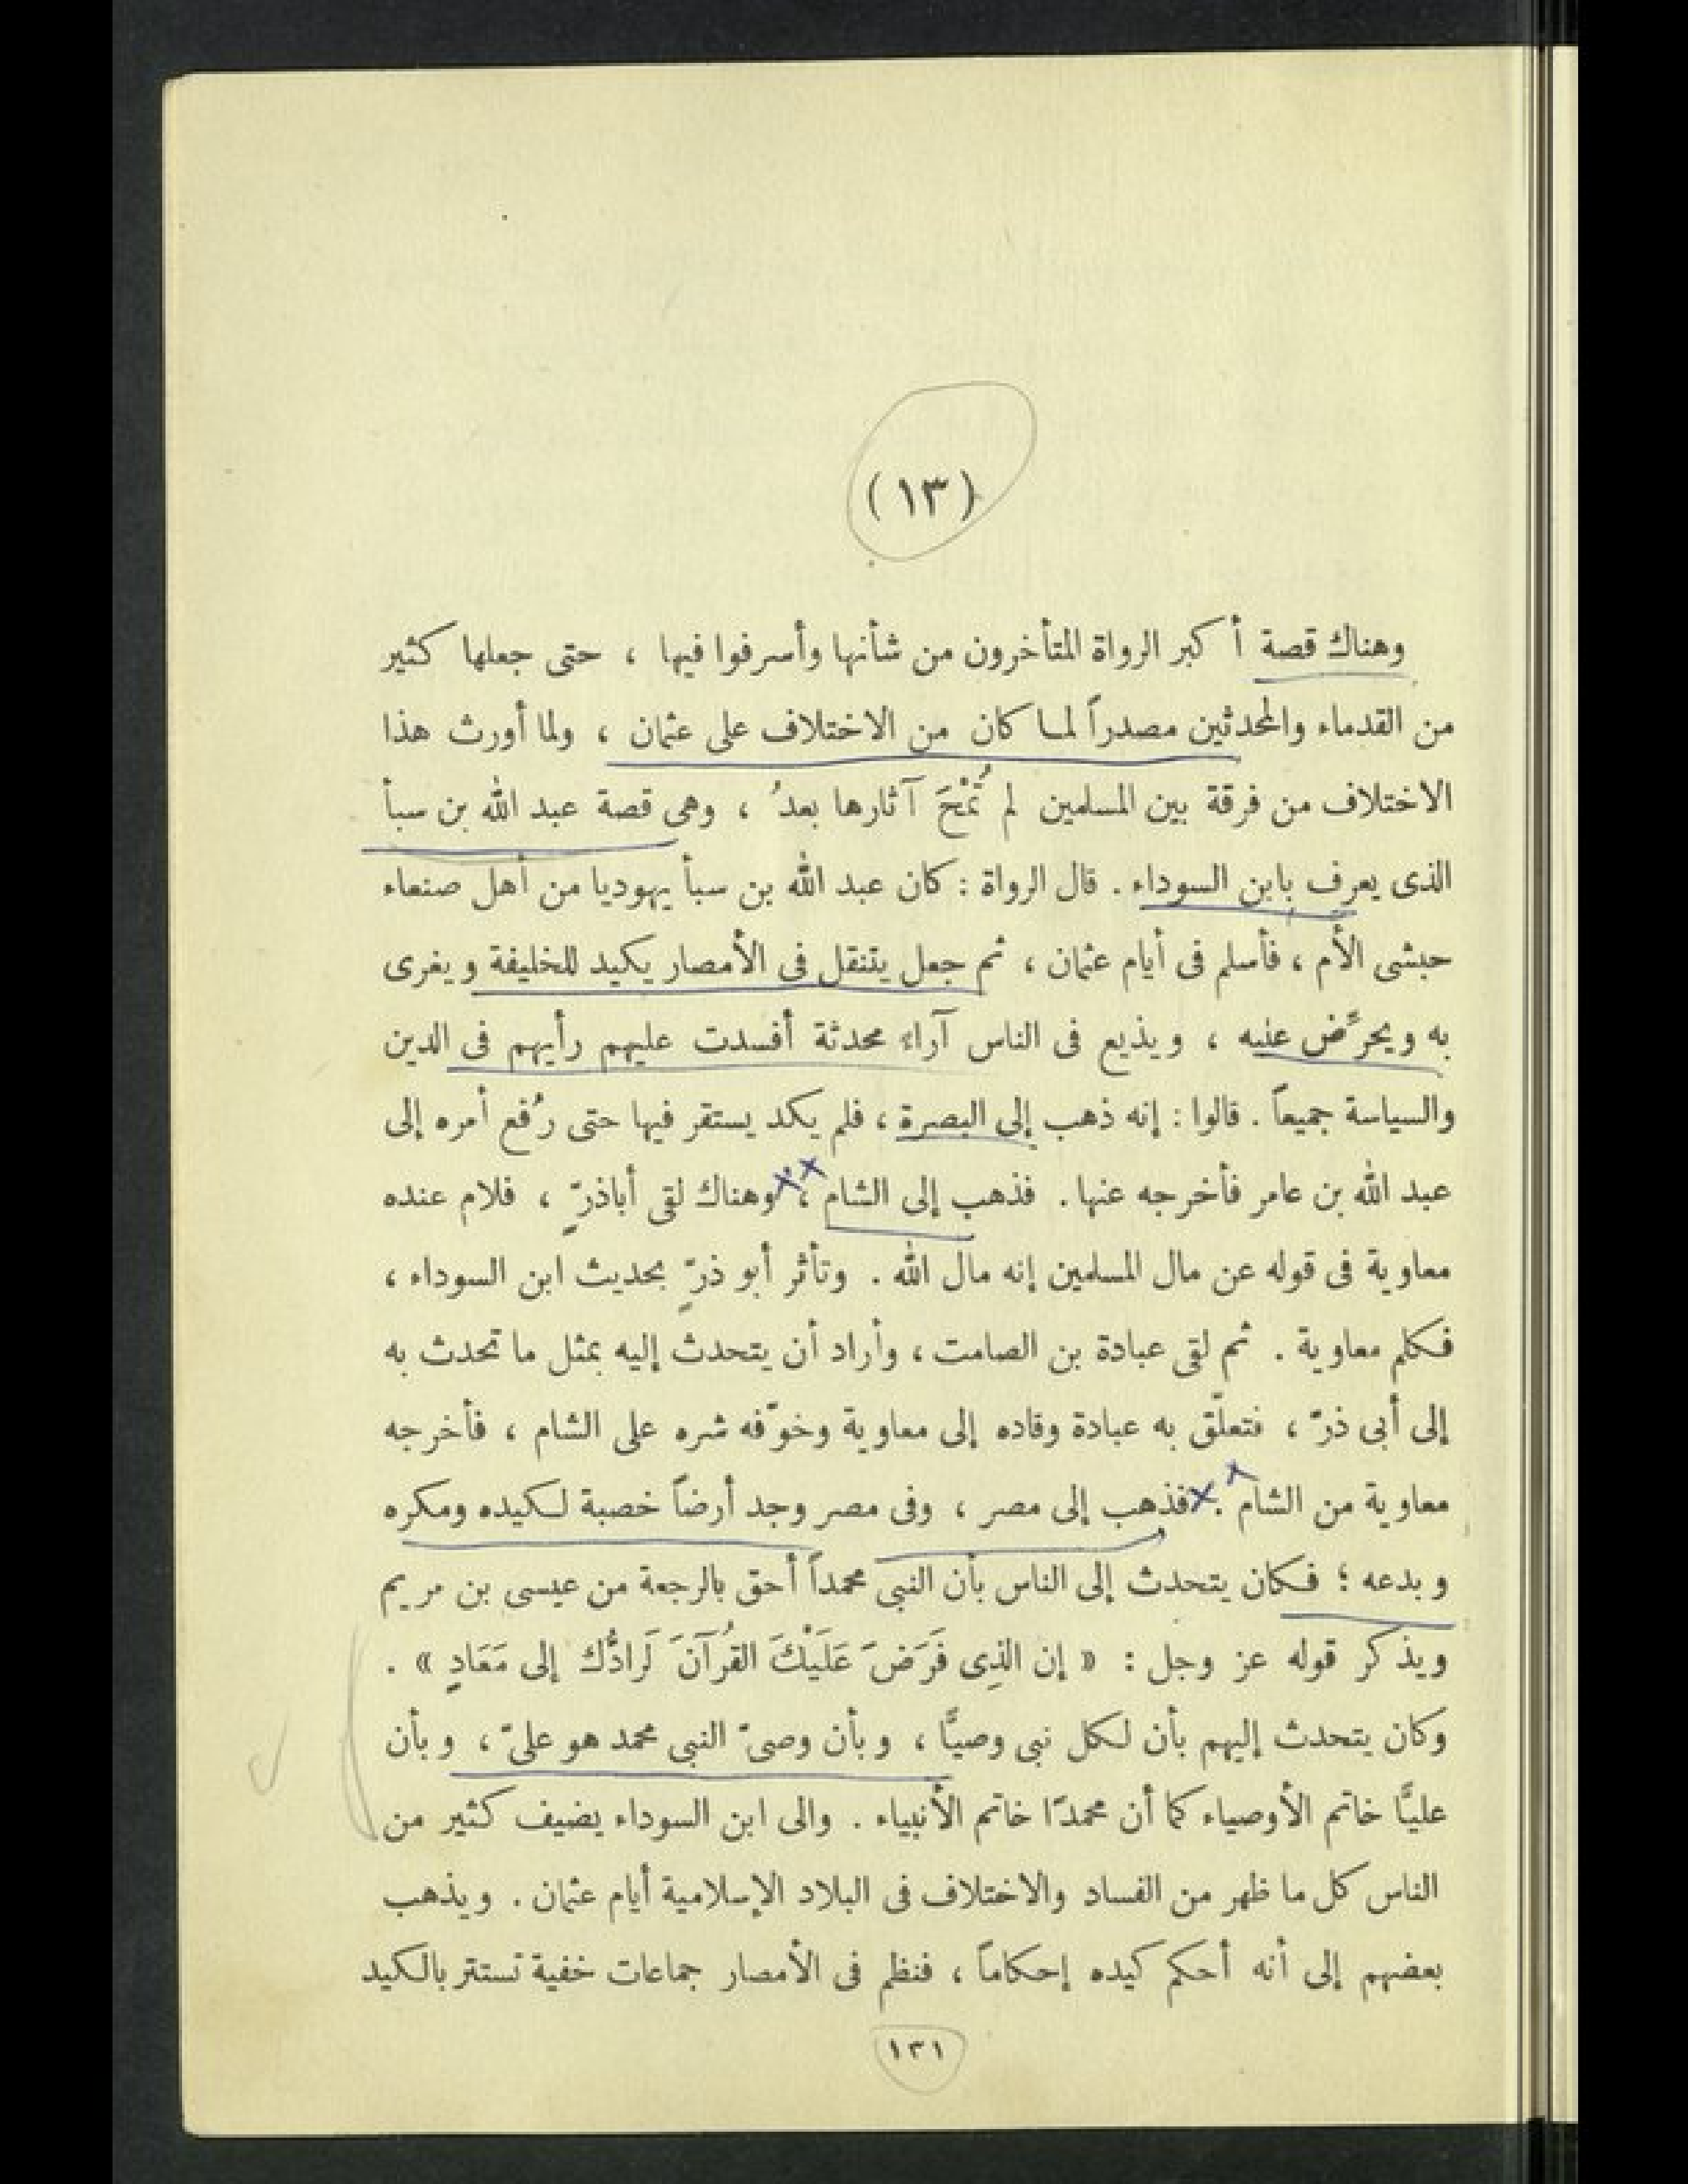 (١٣)
وهناك قصة أكبر الرواة المتأخرون من شأنها وأسرفوا فيها ، حتى جعلها كثير
من القدماء والمحدثين مصدراً لما كان من الاختلاف على عثمان ، ولما أورث هذا
الاختلاف من فرقة بين المسلمين لم تُمْحَ آثارها بعدُ ، وهى قصة عبد الله بن سبأ
الذى يعرف بابن السوداء . قال الرواة : كان عبد الله بن سبأ يهوديا من أهل صنعاء
حبشى الأم ، فأسلم فى أيام عثمان ، ثم جعل يتنقل فى الأمصار يكيد للخليفة ويغرى
به ويحرِّض عليه ، ويذيع فى الناس آراء محدثة أفسدت عليهم رأيهم فى الدين
والسياسة جميعاً . قالوا : إنه ذهب إلى البصرة ، فلم يكد يستقر فيها حتى رُفع أمره إلى
عبد الله بن عامر فأخرجه عنها . فذهب إلى الشام ، وهناك لقى أباذرّ ، فلام عنده
معاوية فى قوله عن مال المسلمين إنه مال الله . وتأثر أبو ذرّ بحديث ابن السوداء ،
فكلم معاوية . ثم لقى عبادة بن الصامت ، وأراد أن يتحدث إليه بمثل ما تحدث به
إلى أبى ذرّ ، فتعلّق به عبادة وقاده إلى معاوية وخوّفه شره على الشام ، فأخرجه
معاوية من الشام . فذهب إلى مصر ، وفى مصر وجد أرضاً خصبة لكيده ومكره
وبدعه ؛ فكان يتحدث إلى الناس بأن النبى محمداً أحق بالرجعة من عيسى بن مريم
ويذكر قوله عز وجل : « إن الذِى فَرَضَ عَلَيْكَ القُرآنَ لَرادُّك إلى مَعَادٍ » .
وكان يتحدث إليهم بأن لكل نبى وصيًّا ، وبأن وصىّ النبى محمد هو علىّ ، وبأن
عليًّا خاتم الأوصياء كما أن محمدًا خاتم الأنبياء . والى ابن السوداء يضيف كثير من
الناس كل ما ظهر من الفساد والاختلاف فى البلاد الإسلامية أيام عثمان . ويذهب
بعضهم إلى أنه أحكم كيده إحكاماً ، فنظم فى الأمصار جماعات خفية تستتر بالكيد
١٣١